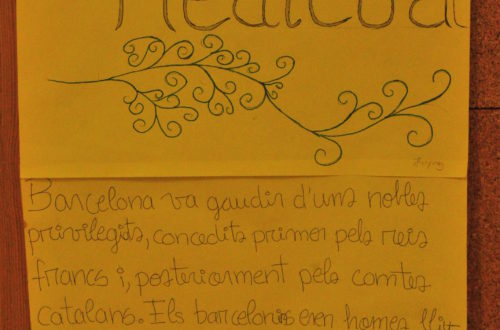 Medieval
Barcelona va gaudir d'uns nobles
privilegits, concedits primer pels reis
francs i, posteriorment pels comtes
catalans. Els barcelonins eren homes